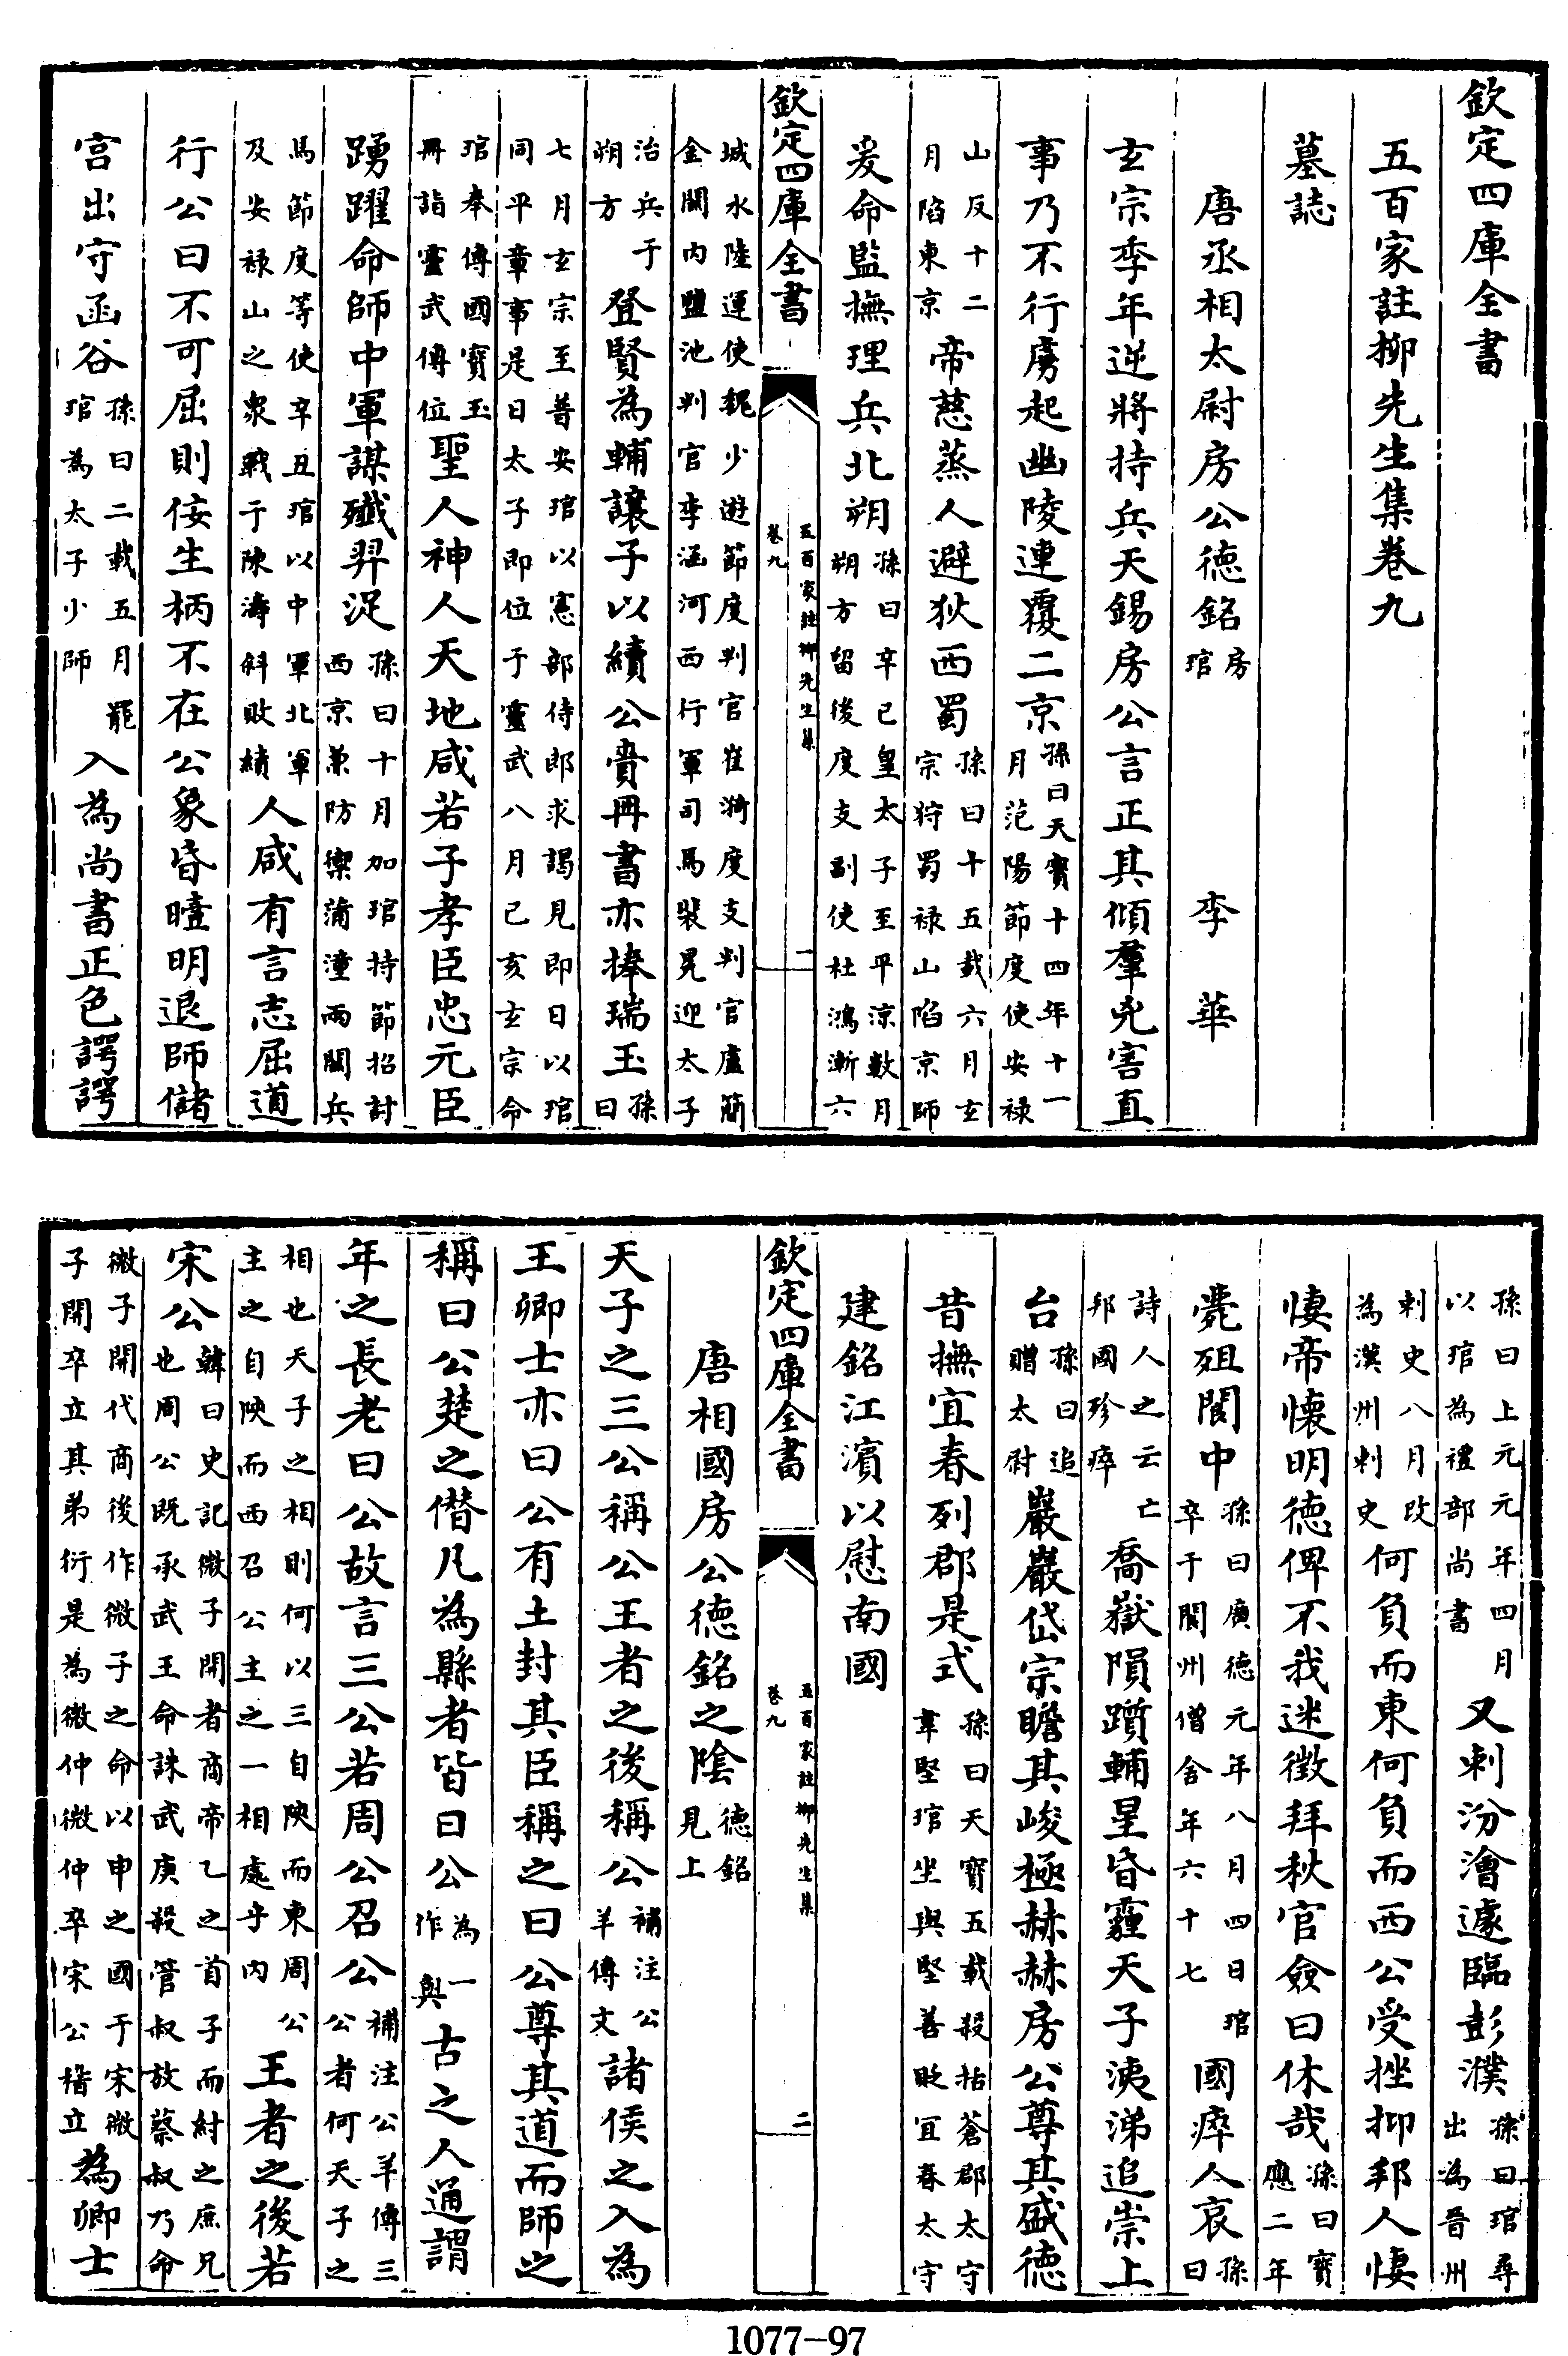 欽定四庫全書
五百家註柳先生集卷九
墓誌
唐丞相太尉房公德銘房琯　李華
玄宗季年逆將持兵天錫房公言正其傾羣兇害直
事乃不行虜起幽陵連覆二京孫曰天寳十四年十一月范陽節度使安禄
山反十二月陷東京帝慈蒸人避狄西蜀孫曰十五載六月玄宗狩蜀禄山陷京師
爰命監撫理兵北朔孫曰辛巳皇太子至平涼數月朔方留後度支副使杜鴻漸六
欽定四庫全書　五百家註柳先生集卷九　一
城水陸運使魏少遊節度判官崔漪度支判官盧簡金關内鹽池判官李涵河西行軍司馬裴冕迎太子
治兵于朔方登賢為輔讓子以續公賫冊書亦捧瑞玉孫曰
七月玄宗至普安琯以憲部侍郎求謁見即日以琯同平章事是日太子即位于靈武八月己亥玄宗命
琯奉傳國寳玉冊詣靈武傳位聖人神人天地咸若子孝臣忠元臣
踴躍命師中軍謀殱羿浞孫曰十月加琯持節招討西京兼防禦蒲潼兩關兵
馬節度等使辛丑琯以中軍北軍及安禄山之衆戰于陳濤斜敗績人咸有言志屈道
行公曰不可屈則佞生柄不在公象昏曀明退師儲
宫出守函谷孫曰二載五月罷琯為太子少師入為尚書正色諤諤
孫曰上元元年四月以琯為禮部尚書又刺汾澮遽臨彭濮孫曰琯尋出為晉州
刺史八月改為漢州刺史何負而東何負而西公受挫抑邦人悽
悽帝懷明德俾不我迷徴拜秋官僉曰休哉孫曰寳應二年
薨殂閬中孫曰廣德元年八月四日琯卒于閬州僧舍年六十七國瘁人哀孫曰
詩人之云亡邦國殄瘁喬嶽隕躓輔星昏霾天子洟涕追崇上
台孫曰追贈太尉巖巖岱宗瞻其峻極赫赫房公尊其盛德
昔撫宜春列郡是式孫曰天寳五載殺括蒼郡太守韋堅琯坐與堅善貶宜春太守
建銘江濱以慰南國
欽定四庫全書　五百家註柳先生集卷九　二
唐相國房公德銘之陰德銘見上
天子之三公稱公王者之後稱公補注公羊傳文諸侯之入為
王卿士亦曰公有土封其臣稱之曰公尊其道而師之
稱曰公楚之僭凡為縣者皆曰公為一作與古之人通謂
年之長老曰公故言三公若周公召公補注公羊傳三公者何天子之
相也天子之相則何以三自陜而東周公主之自陜而西召公主之一相處乎内王者之後若
宋公韓曰史記微子開者商帝乙之首子而紂之庶兄也周公既承武王命誅武庚殺管叔放蔡叔乃命
微子開代商後作微子之命以申之國于宋微子開卒立其弟衍是為微仲微仲卒宋公稽立為卿士
1077-97